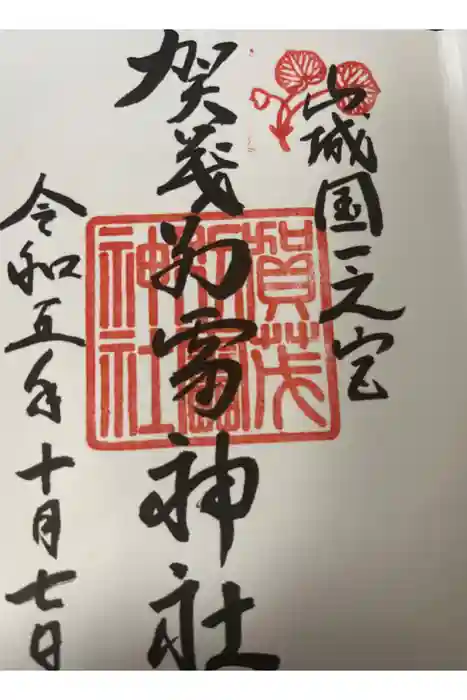 山城国一之宮
賀茂別雷神社
令和五年十月七日
賀茂
別雷
神社